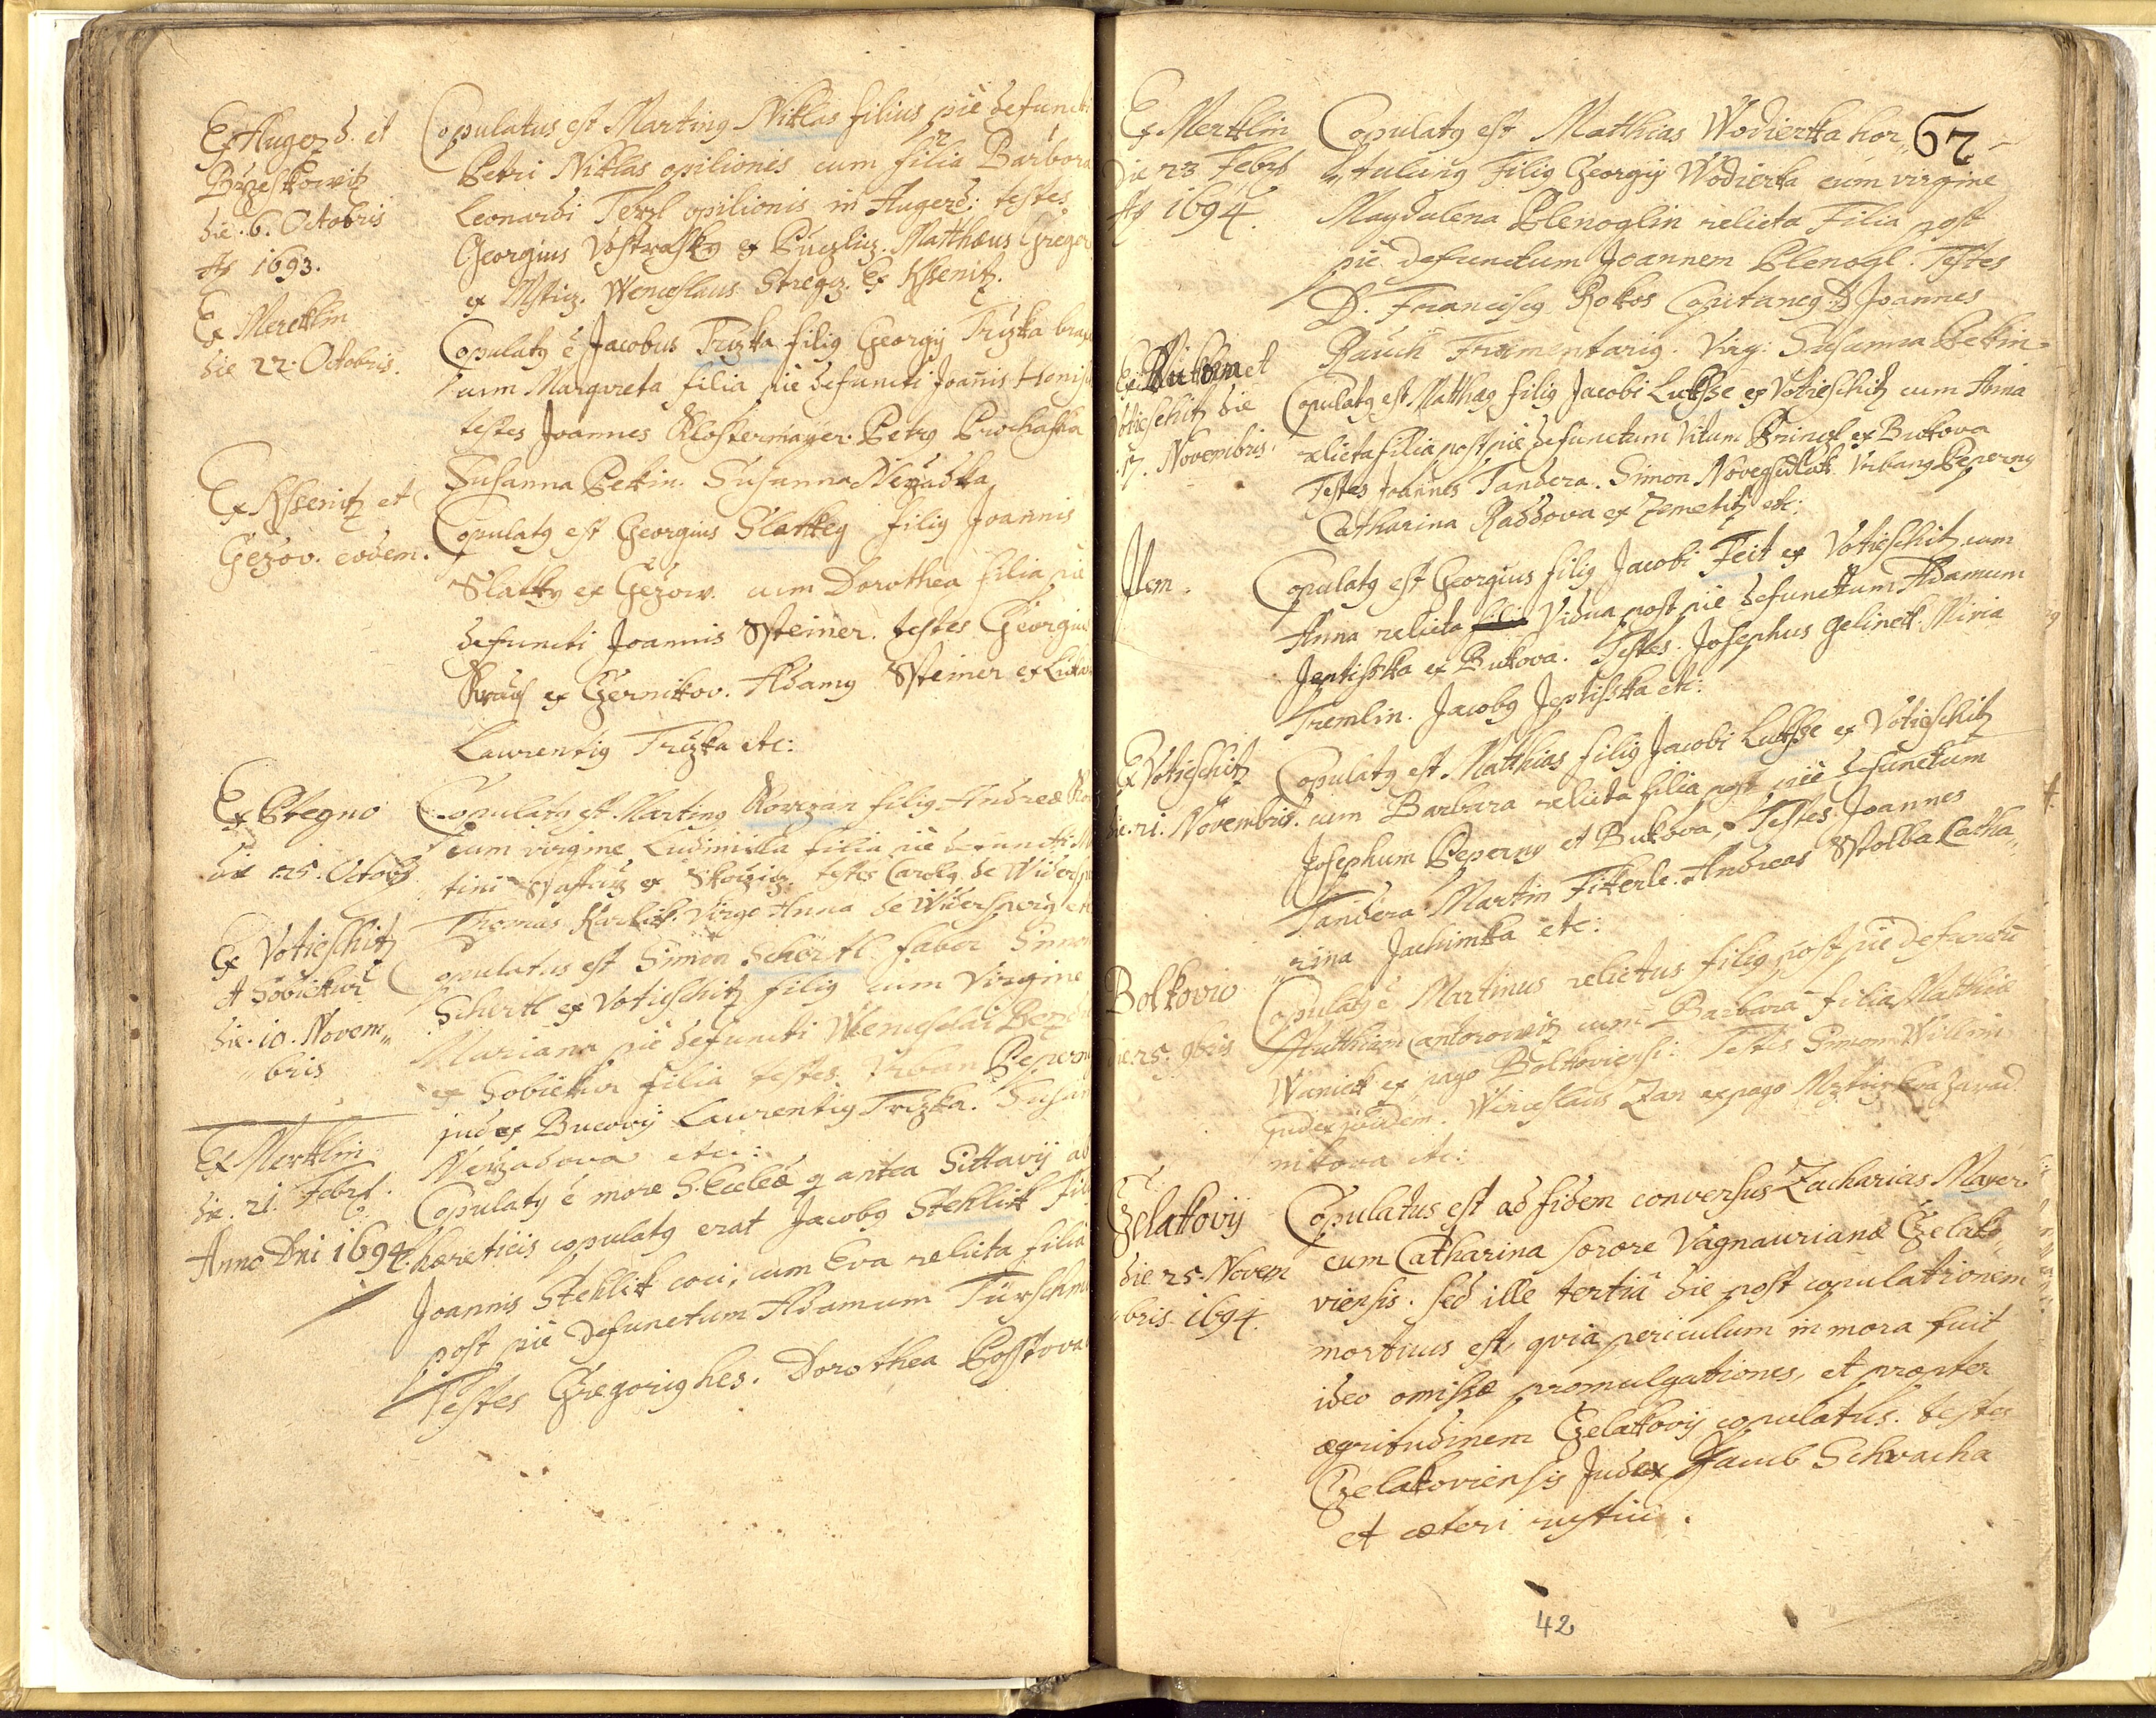 Ex Augezd. et
Brzeskowitz
die. 6. Octobris
Ao 1693.
Copulatus est Martinq Niklas filius pie defuncti
Petri Niklas opilionis cum filia Barbora
Leonardi Terzl opilionis in Augezd: testes
Georgius Vostrasky ex Puczlicz. Matthæus Gregor
ex Msticz. Wenceslaus Stregcz. Ex Kssenitz.
Ex Merctklin
die 22. Octobris.
Copulatq è Jacobus Truzka filiq Georgij Truzka
cum Margareta filia pie defuncti Joannis
testes Joannes Klostermayer. Petrq Prochaska
Susanna Pekin. Susanna Nerzadka
Ex Kssenitz et
Gezov. eodem.
Copulatq est Georgius Slatkeg filiq Joannis
Slatky ex Gezow. cum Dorothea filia pie
defuncti Joannis Ssteiner. testes Georgius
Kraus ex Czernikov. Adamq Ssteiner ex
Laurentiq Truzka etc:
Ex Ptegno
die 25. Octobr
Copulatq est Martinq Korczan filiq Andreæ
cum virgine Ludimilla filia pie defuncti
tini ex Skoczicz. testes Carolq de
Thomas Karlik. Virgo Anna de Widersperg etc
Ex Votieschitz
et Sobiekur
die. 10. Novem„
„bris
Copulatus est Simon Schertl faber Simon
Schertl ex Votieschitz filiq cum Virgine
Mariana pie defuncti Wenceslai
ex Sobiekur filia testes Urban Peperny
judex Bucovij Laurentiq Truzka. Susan
Nerzadova etc:
Ex Merktlin
die. 21. Febr.
Anno Dni 1694.
Copulatq è more S. Eccleæ q antea Sittavij ab
hæreticis copulatq erat Jacobq Stehlik fil
Joannis Stehlik coci, cum Eva relicta filia
post pie defunctum Adamum Türschm
Testes Gregoriq hes. Dorothea Posstova
67
Ex Merktlin
Die 23 Febr
Ao 1694.
Copulatq est Matthias Wodierka hor„
„tulanq Filiq Georgij Wodierka cum virgine
Magdalena Plenoglin relicta Filia post
pie defunctum Joannem Plenogl. Testes
D. Franciscq Rokos Capitaneq. D Joannes
Rauch Frumentariq. Virg: Susanna Pekin.
Ex Bukova et
Votieschitz die
17. Novembris.
Copulatq est Matthæq filiq Jacobi Luksse ex Votieschitz cum Anna
relicta filia post pie defunctum Vitum Princzl ex Bukova
Testes Joannes Tandera. Simon Novegsedlak Urbanq Peperny
Catharina Raddova ex Zemetitz etc:
Item.
Copulatq est Georgius filiq Jacobi Feit ex Votieschitz cum
Anna relicta filia Vidua post pie defunctum Adamum
Jeptisska ex Bukova. Testes. Josephus Gelinek. Miria
Tremlin. Jacobq Jeptisska etc:
Ex Votieschitz
die. 21. Novembris.
Copulatq est Matthias filiq Jacobi Luksse ex Votieschitz
cum Barbara relicta filia post pie defunctum
Josephum Peperny et Bukova, Testes Joannes
Tandera Martin Fikerle. Andreas Sstolba Catha„
„rina Jachimka etc:
Bolkovio
die 25. 9bris
Copulatq è Martinus relictus filiq post pie defunctu
Matthiam Cantorowitz cum Barbara filia Matthiæ
Waniek ex pago Bolkoviensi: Testes Simon
judex ibidem. Wenceslaus Zan ex pago
nikova etc:
Czelakovij
die 25. Novem
„bris 1694.
Copulatus est ad fidem conversus Zacharias Mayer
cum Catharina sorore Vagnaurianæ Czelako„
viensis. Sed ille tertiu die post copulationem
mortuus est, qvia periculum in mora fuit
ideo omissæ promulgationes, et propter
ægritudinem Czelakovij copulatus. testes
Czelakoviensis Judex Jacub Schvacha
et cæteri rustici.
42